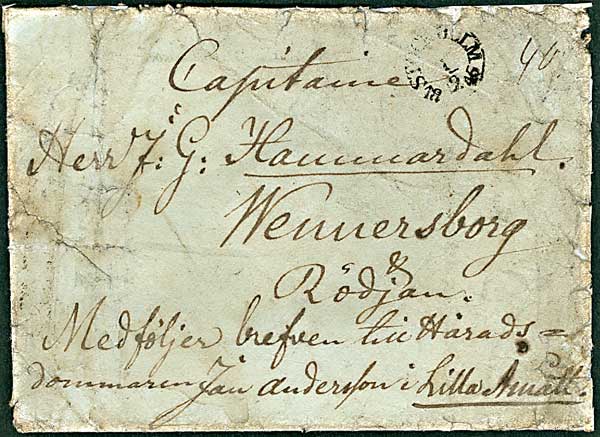 STOCKHOLM
40
Capitaine
Herr J: G: Hammardahl.
Wennersborg
&
Rödjan.
Medföljer brefven till Härads=
dommaren Jan andersson i Lilla